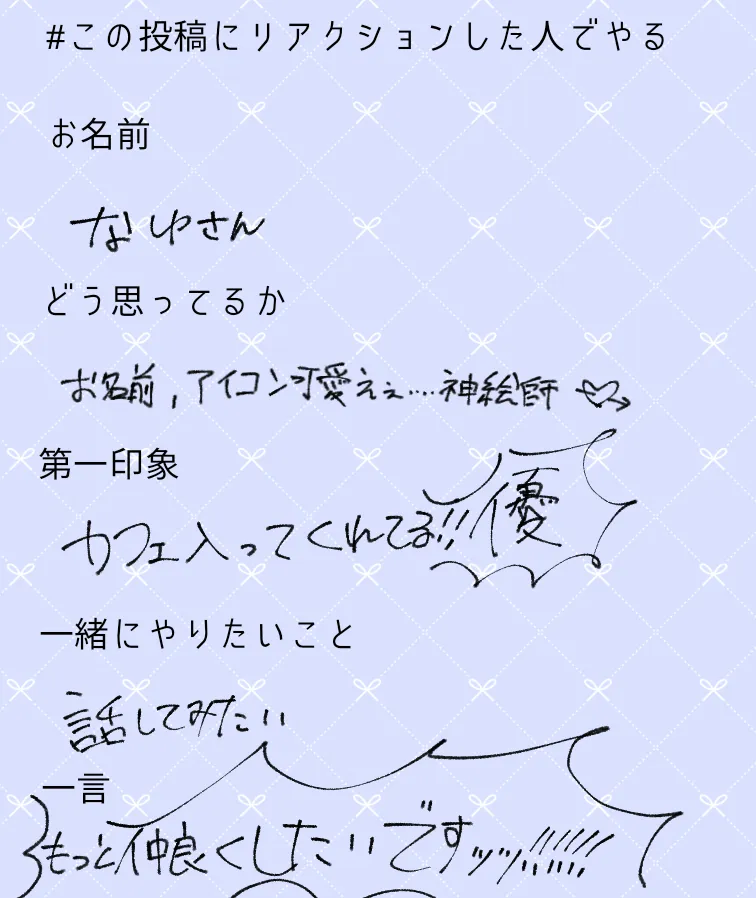 #この投稿にリアクションした人でやる
お名前
なゆさん
どう思ってるか
お名前,アイコン可愛ええ....神絵師
第一印象
カフェ入ってくれてる!!優
一緒にやりたいこと
話してみたい
一言
もっと仲良くしたいですッッ!!!!!!